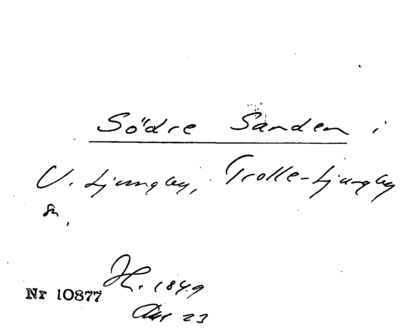 Södre Sanden i
V. Ljungby, Trolle-Ljungby
sn.
H. 1849
Nr 10877
23